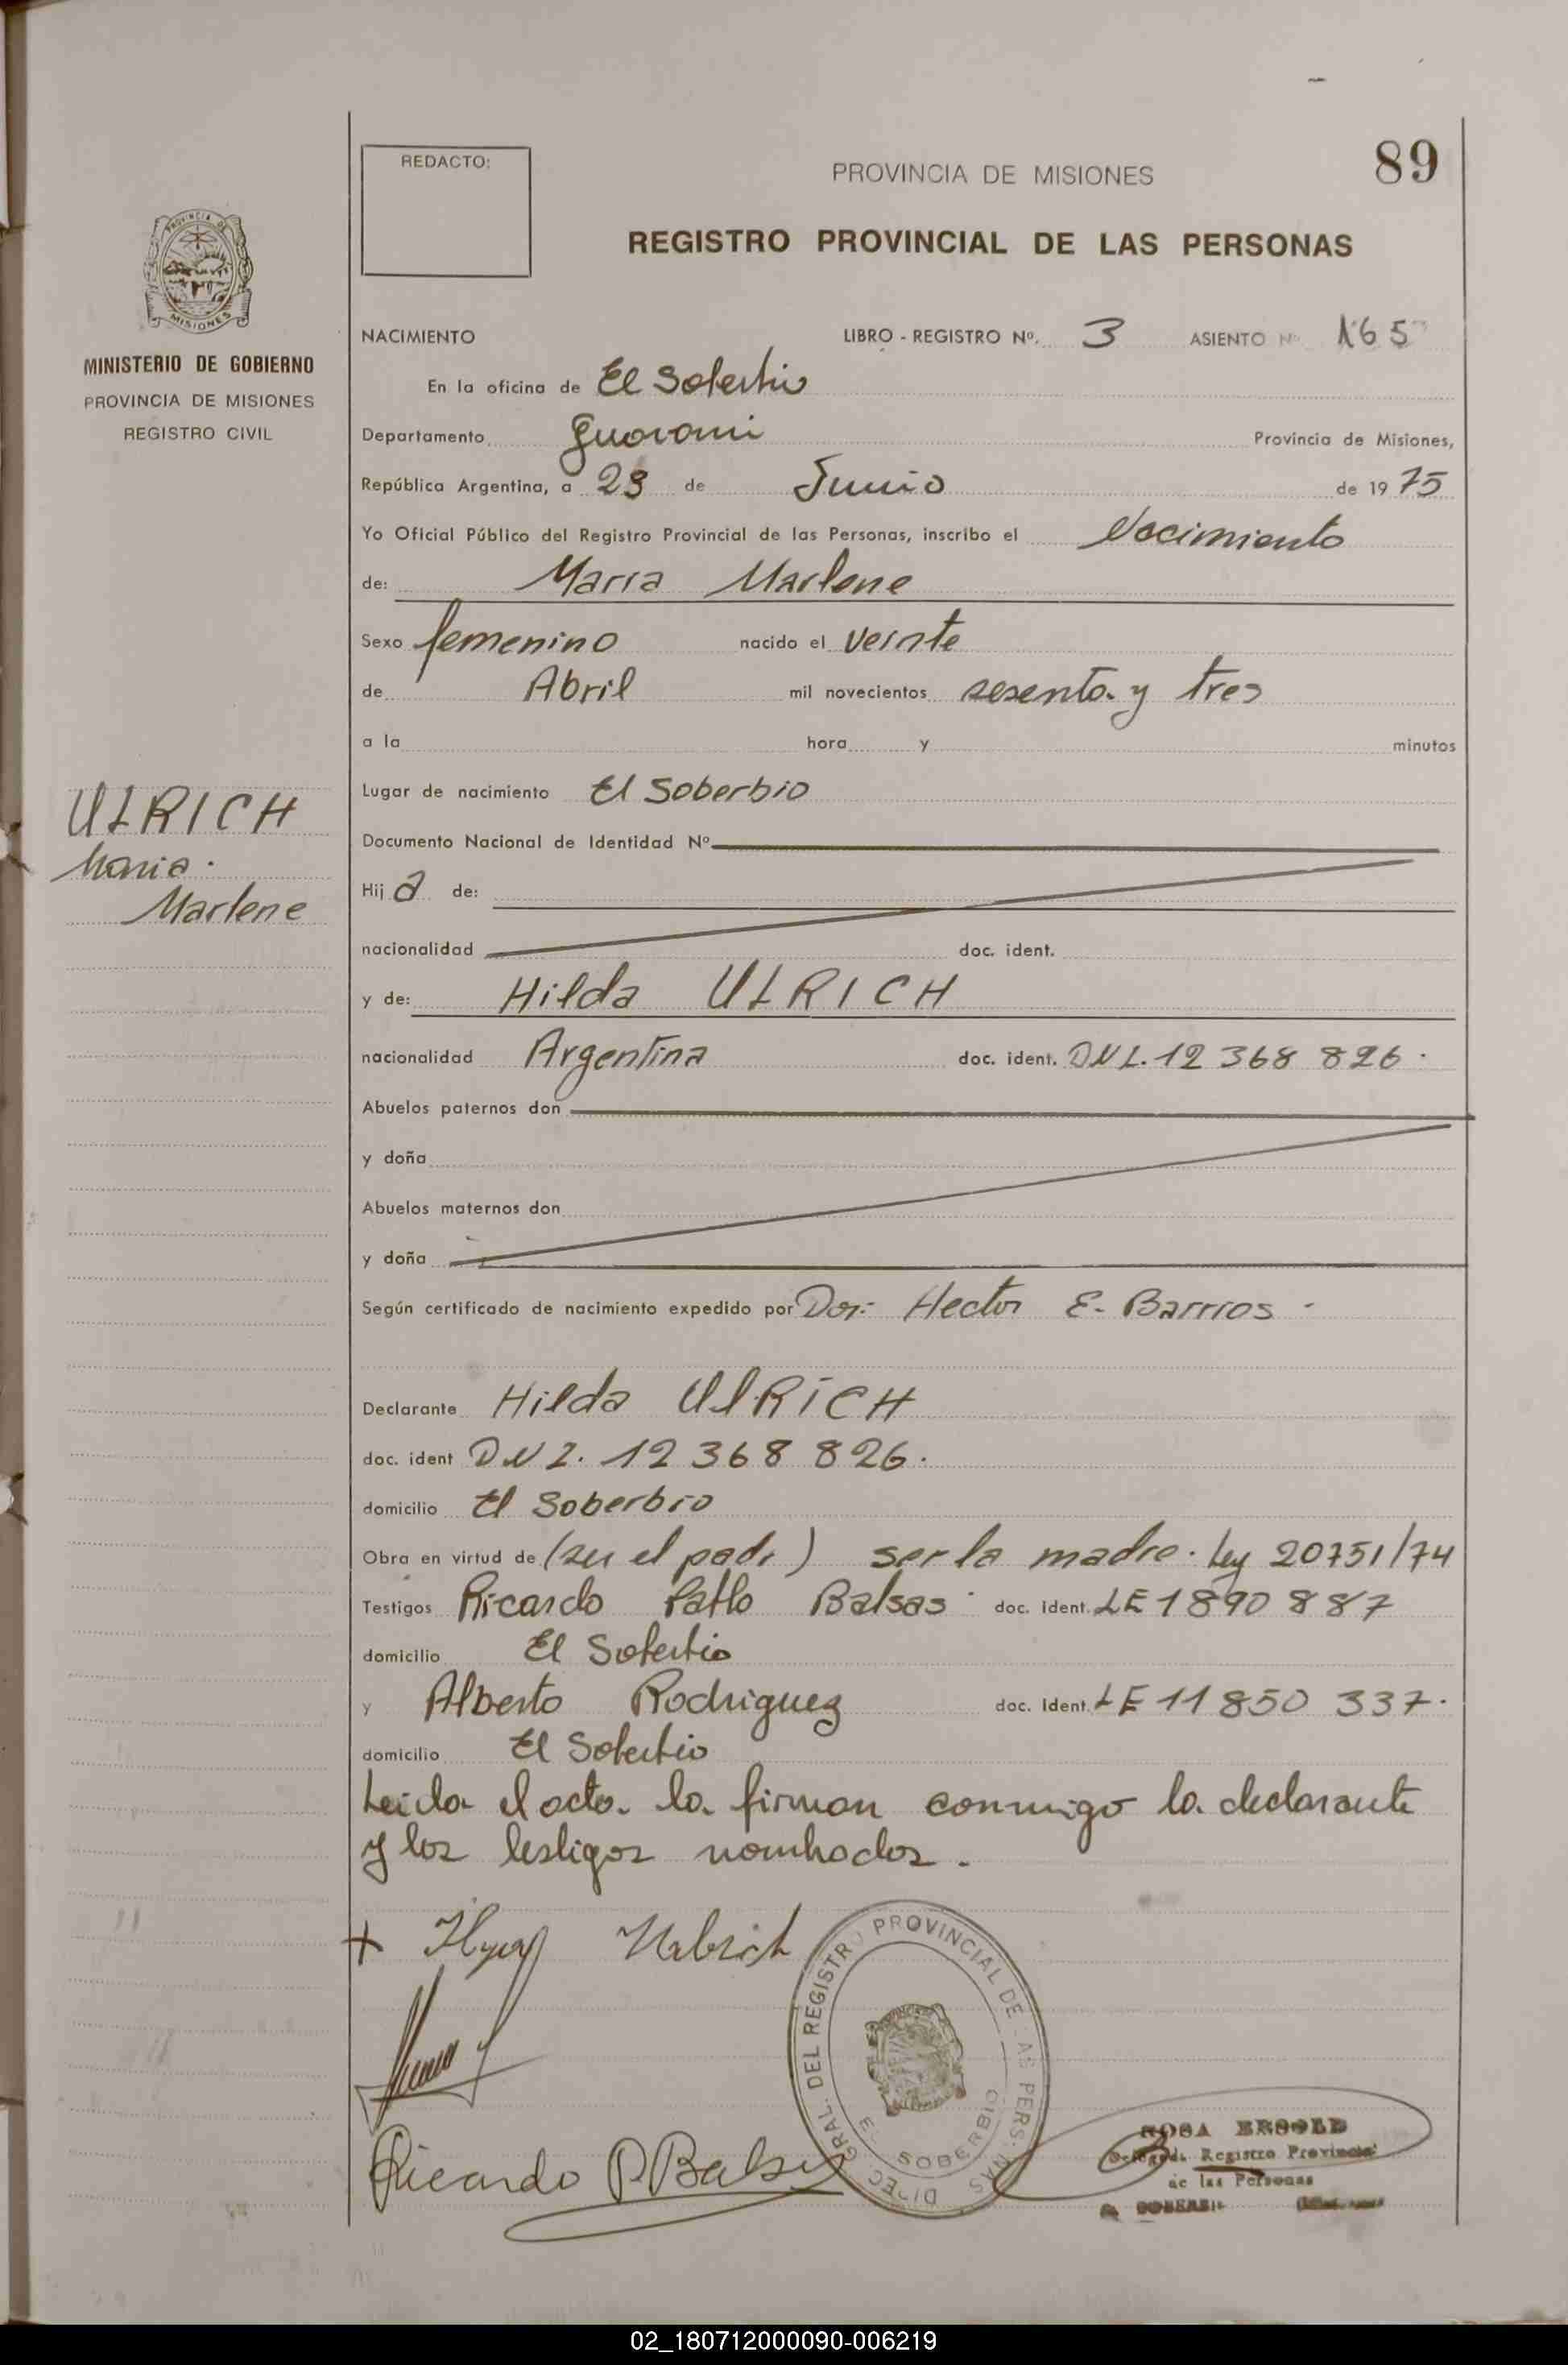 89
REDACTO:
PROVINCIA DE MISIONES
REGISTRO PROVINCIAL DE LAS PERSONAS
PROVINCIA DE
MISIONES
MINISTERIO DE GOBIERNO
PROVINCIA DE MISIONES
REGISTRO CIVIL
NACIMIENTO LIBRO - REGISTRO Nº. 3 ASIENTO Nº 165
En la oficina de El Soberbio
Departamento Guarani Provincia de Misiones,
República Argentina, a 23 de Junio de 1975
Yo Oficial Público del Registro Provincial de las Personas, inscribo el Nacimiento
de: María Marlene
Sexo femenino nacido el veinte
de Abril mil novecientos sesenta y tres
a la hora y minutos
Lugar de nacimiento El Soberbio
ULRICH
Maria
Marlene
Documento Nacional de Identidad Nº
Hij a de:
nacionalidad doc. ident.
y de: Hilda ULRICH
nacionalidad Argentina doc. ident. DNI. 12 368 826.
Abuelos paternos don
y doña
Abuelos maternos don
y doña
Según certificado de nacimiento expedido por Dor: Hector E. Barrios
Declarante Hilda ULRICH
doc. ident DNI. 12 368 826.
domicilio El Soberbio
Obra en virtud de (ser el padr) ser la madre. Ley 20751/74
Testigos Ricardo Pablo Balsas doc. ident. LE 1890 887
domicilio El Soberbio
y Alberto Rodriguez doc. ident. LE 11 850 337.
domicilio El Soberbio
Leida el acta la firman conmigo la declarante
y los testigos nombrados.
Ricardo P Balsas
DIREC. GRAL. DEL REGISTRO PROVINCIAL DE LAS PERSONAS
EL SOBERBIO
ROSA
Delegada Registro Provincial
de las Personas
EL SOBERBIO
02_180712000090-006219